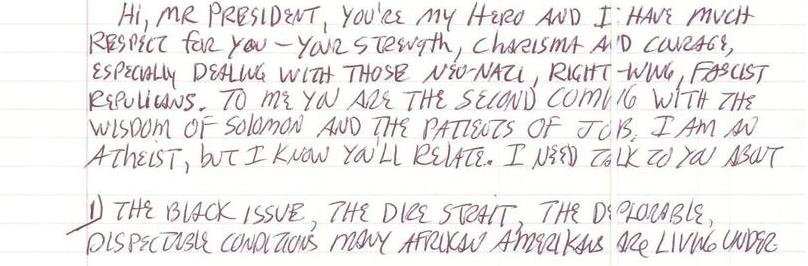 Hi, MR PRESIDENT, YOU'RE MY HERO AND I HAVE MUCH
RESPECT for YOU - YOUR STRENGTH, CHARISMA AND COURAGE,
ESPECIALLY DEALING WITH THOSE NEO-NAZI, RIGHT-WING, FASCIST
REPULICANS. TO ME YOU ARE THE SECOND COMING WITH THE
WISDOM OF SOLOMON AND THE PATIENTS OF JOB. I AM AN
ATHEIST, but I KNOW YOU'LL RELATE. I NEED TALK TO YOU ABOUT
1) THE BLACK ISSUE, THE DIRE STRAIT, THE DEPLORABLE,
DISPECTABLE CONDITIONS MANY AFRIKAN AMERIKANS ARE LIVING UNDER